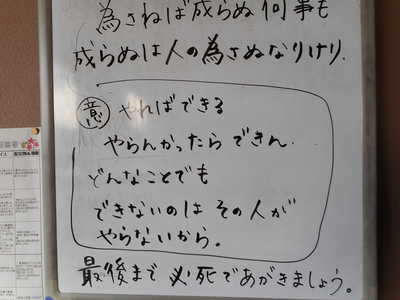 為さねば成らぬ何事も
成らぬは人の為さぬなりけり.
意 やればできる
やらんかったら できん.
どんなことでも
できないのは その人が
やらないから。
最後まで 必死であがきましょう。